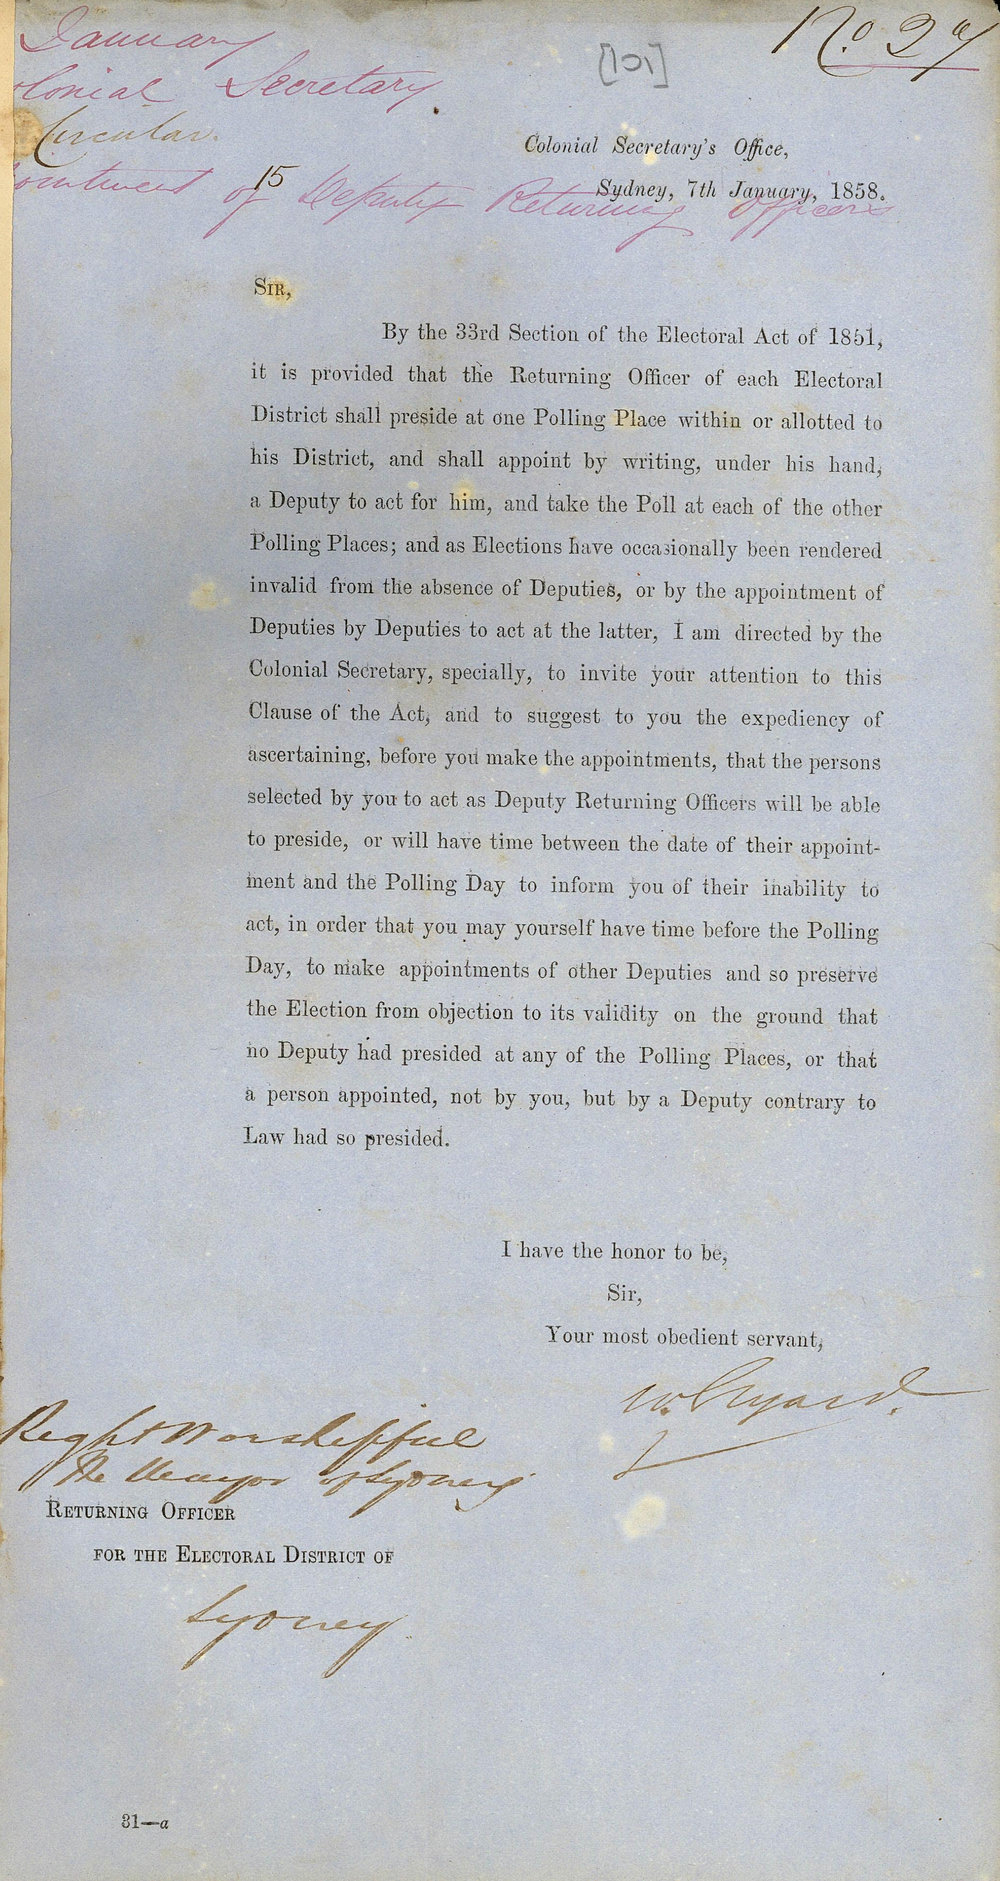 January
No. 27
[101]
Colonial Secretary
Circular.
Colonial Secretary's Office,
15
Sydney, 7th January, 1858.
of Deputy Returning Officers
SIR,
By the 33rd Section of the Electoral Act of 1851,
it is provided that the Returning Officer of each Electoral
District shall preside at one Polling Place within or allotted to
his District, and shall appoint by writing, under his hand,
a Deputy to act for him, and take the Poll at each of the other
Polling Places; and as Elections have occasionally been rendered
invalid from the absence of Deputies, or by the appointment of
Deputies by Deputies to act at the latter, I am directed by the
Colonial Secretary, specially, to invite your attention to this
Clause of the Act, and to suggest to you the expediency of
ascertaining, before you make the appointments, that the persons
selected by you to act as Deputy Returning Officers will be able
to preside, or will have time between the date of their appoint-
ment and the Polling Day to inform you of their inability to
act, in order that you may yourself have time before the Polling
Day, to make appointments of other Deputies and so preserve
the Election from objection to its validity on the ground that
no Deputy had presided at any of the Polling Places, or that
a person appointed, not by you, but by a Deputy contrary to
Law had so presided.
I have the honor to be,
Sir,
Your most obedient servant,
W. Elyard.
Right Worshipful
The Mayor of Sydney
RETURNING OFFICER
FOR THE ELECTORAL DISTRICT OF
Sydney
31—a